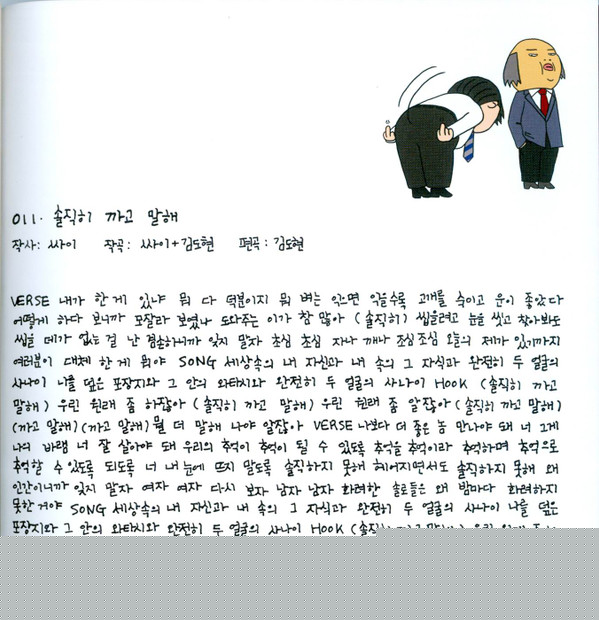 011. 솔직히 까고 말해
작사: 싸이 작곡: 싸이+김도현 편곡: 김도현
VERSE 내가 한 게 있냐 뭐 다 덕분이지 뭐 벼는 익으면 익을수록 고개를 숙이고 운이 좋았다
어떻게 하다 보니까 포잘라 보였나 도와주는 이가 참 많아 (솔직히) 씹을려고 눈을 씻고 찾아봐도
씹을 데가 없는 걸 난 겸손하니까 잊지 말자 초심 초심 자나 깨나 조심 조심 오늘의 제가 있기까지
여러분이 대체 한 게 뭐야 SONG 세상속의 내 자신과 내 속의 그 자식과 완전히 두 얼굴의
사나이 나를 덮은 포장지와 그 안의 와타시와 완전히 두 얼굴의 사나이 HOOK (솔직히 까고
말해) 우린 원래 좀 하잖아 (솔직히 까고 말해) 우린 원래 좀 알잖아 (솔직히 까고 말해)
(까고 말해) (까고 말해) 뭘 더 말해 나야 알잖아 VERSE 나보다 더 좋은 놈 만나야 돼 너 그게
나의 바램 너 잘 살아야 돼 우리의 추억이 추억이 될 수 있도록 추억을 추억이라 추억하며 추억으로
추억할 수 있도록 되도록 너 내 눈에 뜨지 말도록 솔직하지 못해 헤어지면서도 솔직하지 못해 왜
인간이니까 잊지 말자 여자 여자 다시 보자 남자 남자 화려한 솔로들은 왜 밤마다 화려하지
못한거야 SONG 세상속의 내 자신과 내 속의 그 자식과 완전히 두 얼굴의 사나이 나를 덮은
포장지와 그 안의 와타시와 완전히 두 얼굴의 사나이 HOOK